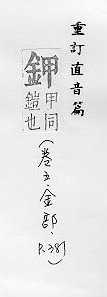 重訂直音篇
鉀甲同
鎧也
(卷五·金部,
P.381)